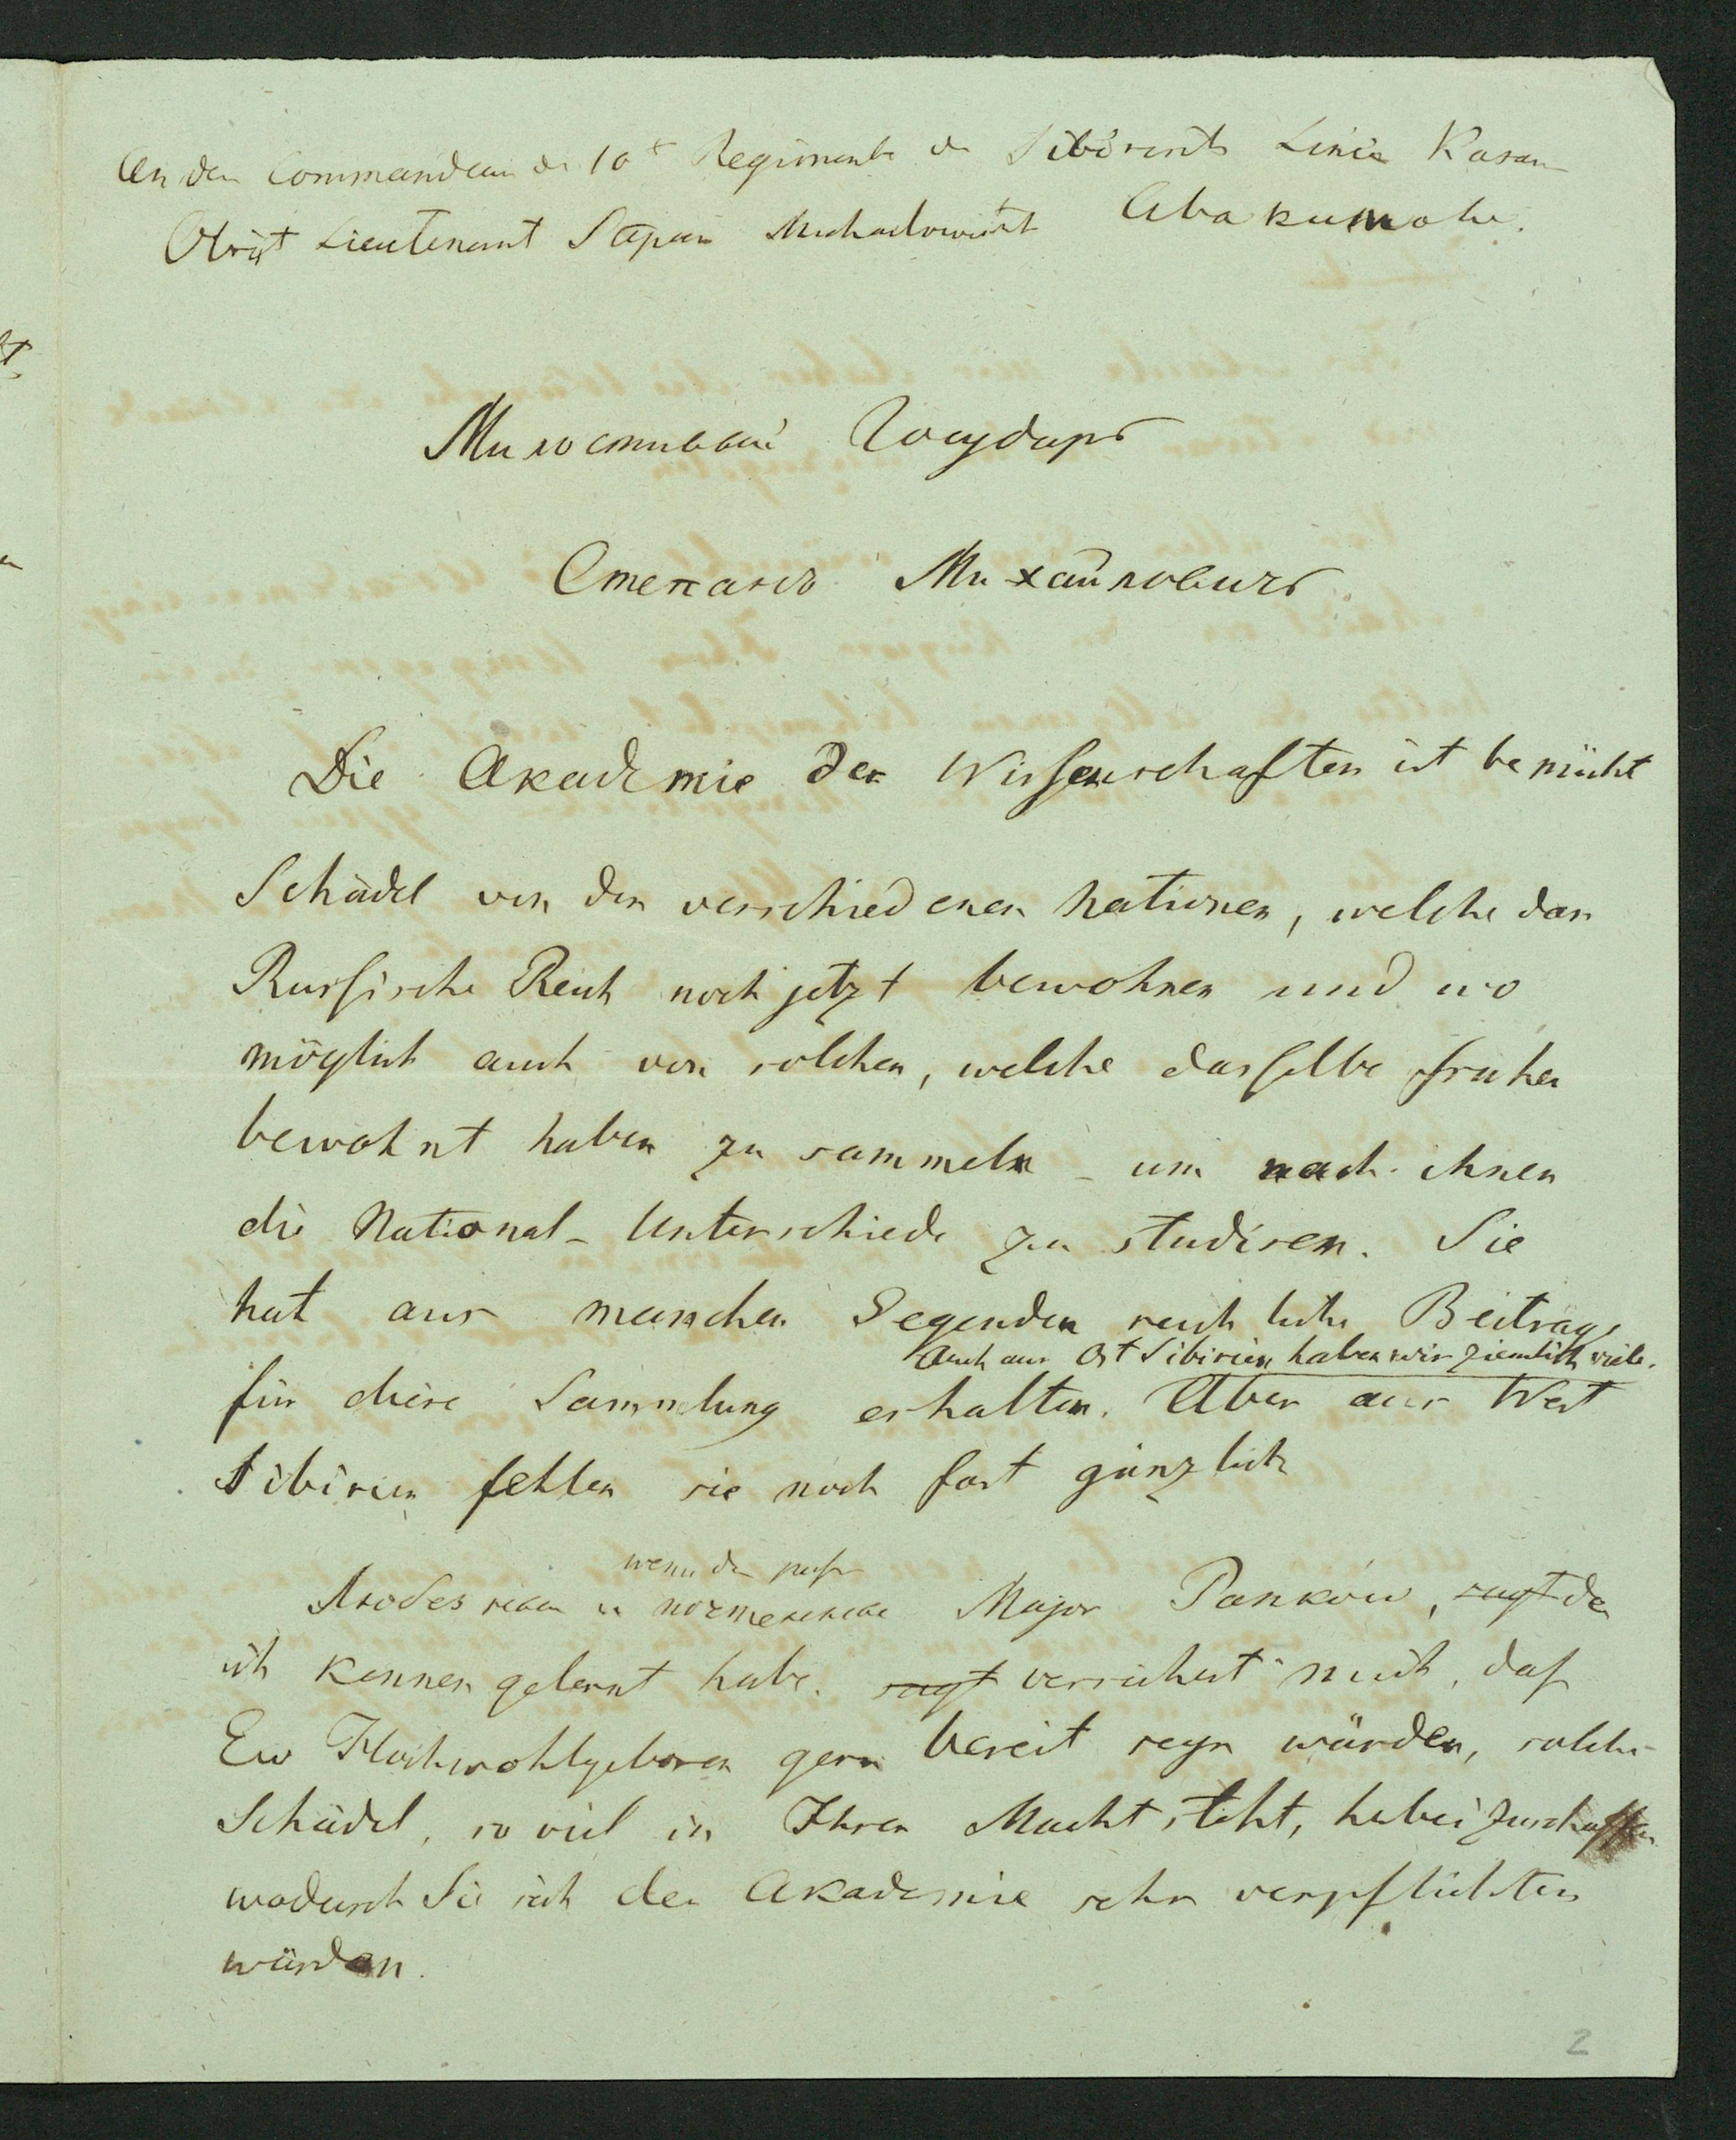 An den Commandeur des 10t Regiments der Sibirisch Linie Kasan
Obrist Lieutenant Stepan Michailowitsch Abakumoke.
Милостивый Государь
Степанъ Михайловичь
Die Akademie der Wissenschaften ist bemüht
Schädel von den verschiedenen Nationen, welche das
Russische Reich noch jetzt bewohnen und wo
möglich auch von solchen, welche dasselbe früher
bewohnt haben zu sammeln – um nach ihnen
die National-Unterschiede zu studiren. Sie
hat aus manchen Gegenden reichliche Beiträge
Auch aus Ost Sibirien haben wir ziemlich viele.
für diese Sammlung erhalten. Aber aus West
Sibirien fehlen sie noch fast gänzlich
wenn der
и Major Pankow, sagt den
ich kennen gelernt habe. sagt versichert mich, daß
Ew Hochwohlgeboren gern bereit seyn würden, solche
Schädel, so viel in Ihrer Macht steht, herbei zu schaffen
wodurch Sie sich der Akademie sehr verpflichten
würden.
2